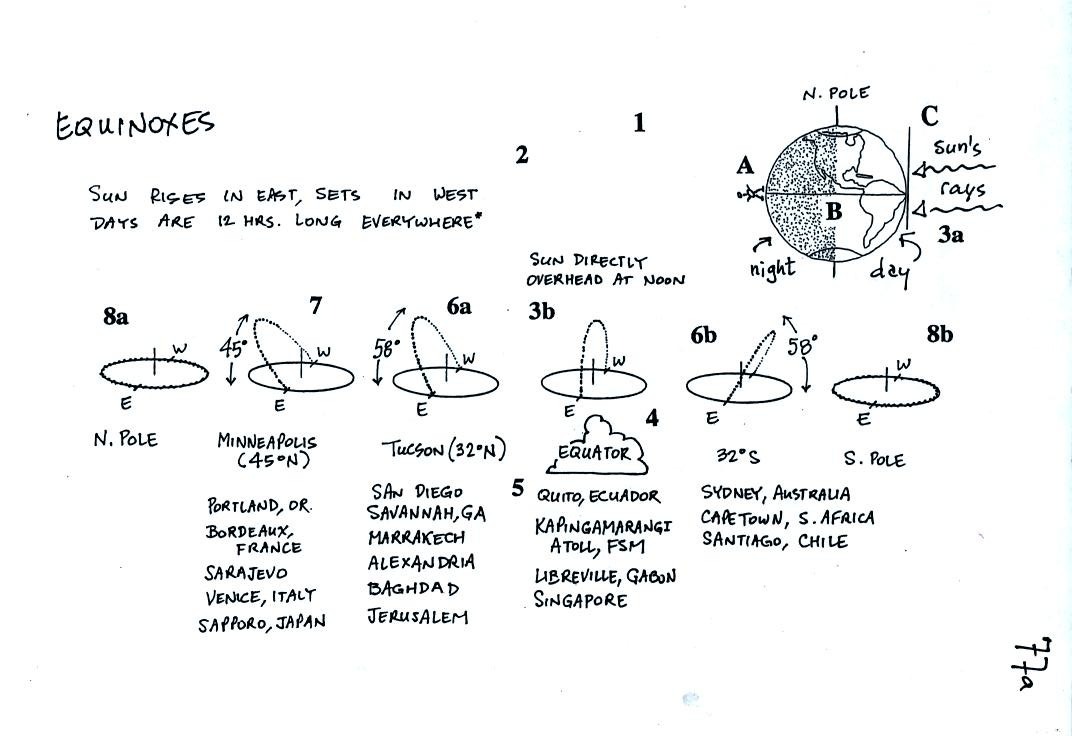 N. POLE
EQUINOXES
1
C
2
Sun's
A
SUN RISES IN EAST, SETS IN WEST
rays
DAYS ARE 12 HRS. LONG EVERYWHERE*
B
3a
SUN DIRECTLY
OVERHEAD AT NOON
night
day
8a
7
6a
3b
6b
8b
W
45°
W
58°
W
W
58°
W
E
E
E
E
E
E
4
N. POLE
MINNEAPOLIS
(45°N)
TUCSON (32°N)
EQUATOR
32°S
S. POLE
PORTLAND, OR.
BORDEAUX,
FRANCE
SARAJEVO
VENICE, ITALY
SAPPORO, JAPAN
SAN DIEGO
SAVANNAH, GA
MARRAKECH
ALEXANDRIA
BAGHDAD
JERUSALEM
5
QUITO, ECUADOR
KAPINGAMARANGI
ATOLL, FSM
LIBREVILLE, GABON
SINGAPORE
SYDNEY, AUSTRALIA
CAPETOWN, S. AFRICA
SANTIAGO, CHILE
77a